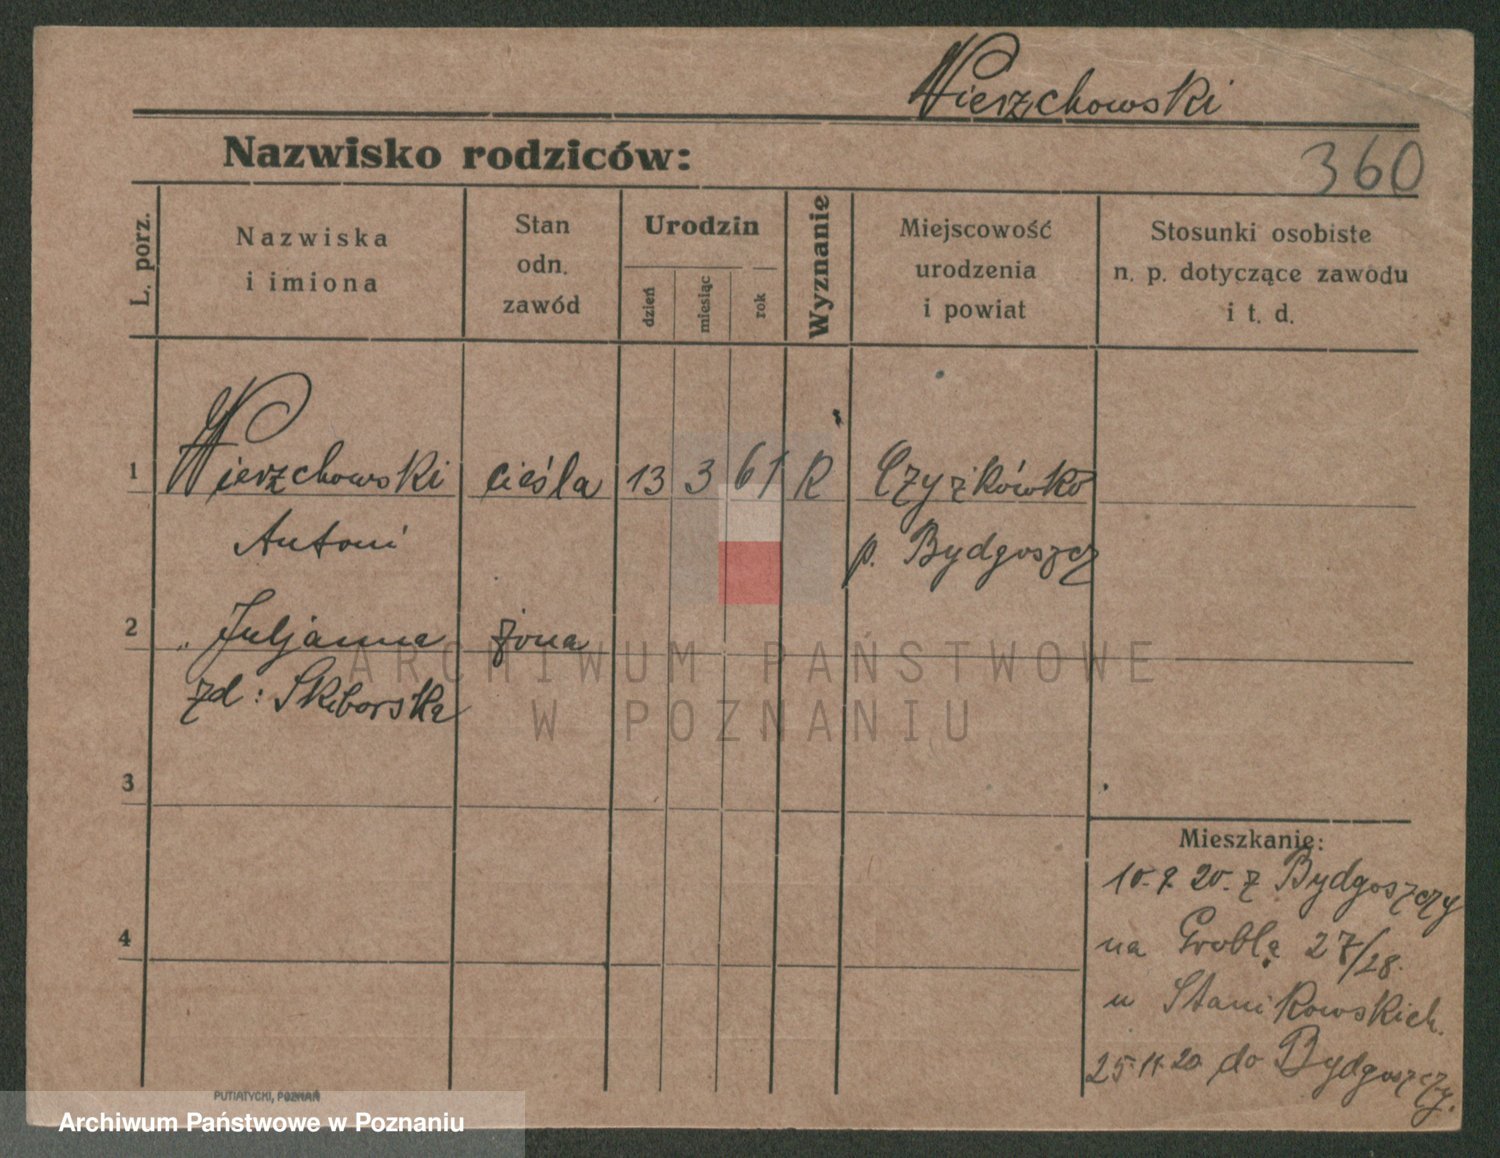 Wierzchowski
Nazwisko rodziców:
360
L. porz.
Nazwiska
i imiona
Stan
odn.
zawód
Urodzin
dzień
miesiąc
rok
Wyznanie
Miejscowość
urodzenia
i powiat
Stosunki osobiste
n. p. dotyczące zawodu
i t. d.
1 Wierzchowski cieśla 13 3 61 R Czyżkówko
Antoni p. Bydgoszcz
2 " Juljanna żona
zd: Skiborska
ARCHIWUM PAŃSTWOWE
W POZNANIU
3
4
Mieszkanie:
10.9 20. z Bydgoszczy
na Groblę 27/28.
u Stanikowskich.
25.11.20 do Bydgoszczy.
PUTIATYCKI, POZNAŃ
Archiwum Państwowe w Poznaniu